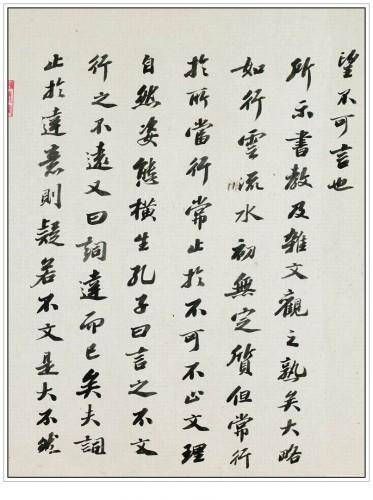 望不可言也
所示書教及雜文觀之熟矣大略
如行雲流水初無定質但常行
於所當行常止於不可不止文理
自然姿態橫生孔子曰言之不文
行之不遠又曰詞達而已矣夫詞
止於達意則疑若不文是大不然